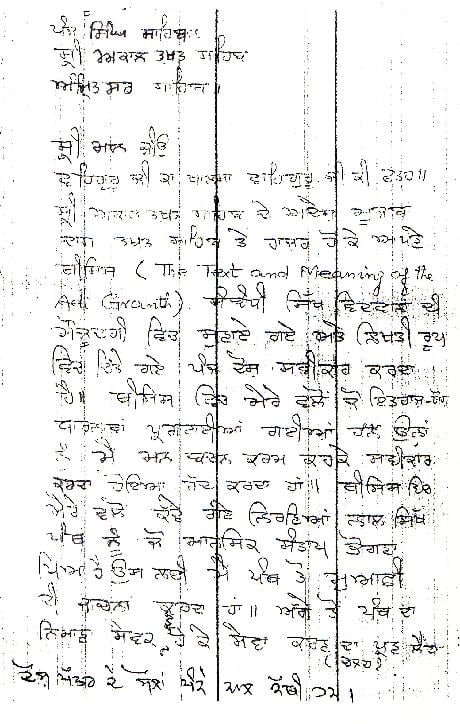 ਪੰਜ ਸਿੰਘ ਸਾਹਿਬਾਨ
ਸ੍ਰੀ ਅਕਾਲ ਤਖ਼ਤ ਸਾਹਿਬ
ਅੰਮ੍ਰਿਤਸਰ ਸਾਹਿਬ॥
ਸ੍ਰੀ ਮਾਨ ਜੀਓ
ਵਾਹਿਗੁਰੂ ਜੀ ਕਾ ਖਾਲਸਾ ਵਾਹਿਗੁਰੂ ਜੀ ਕੀ ਫਤਹ॥
ਸ੍ਰੀ ਅਕਾਲ ਤਖਤ ਸਾਹਿਬ ਦੇ ਆਦੇਸ਼ ਅਨੁਸਾਰ
ਦਾਸ ਤਖਤ ਸਾਹਿਬ ਤੇ ਹਾਜ਼ਰ ਹੋ ਕੇ ਆਪਣੇ
ਥੀਸਿਸ (The Text and Meaning of the
Adi Granth) ਸਿੱਖ ਵਿਦਵਾਨਾਂ ਦੀ
ਮੌਜੂਦਗੀ ਵਿਚ ਸੁਣਾਏ ਗਏ ਅਤੇ ਲਿਖਤੀ ਰੂਪ
ਵਿਚ ਦਿੱਤੇ ਗਏ ਪੰਜ ਦੋਸ਼ ਸਵੀਕਾਰ ਕਰਦਾ
ਹੈ। ਥੀਸਿਸ ਵਿਚ ਮੇਰੇ ਵਲੋਂ ਜੋ ਇਤਰਾਜ਼-ਯੋਗ
ਧਾਰਨਾਵਾਂ ਪ੍ਰਨਾਈਆਂ ਗਈਆਂ ਹਨ ਉਨਾਂ
ਨੂੰ ਮੈਂ ਮਨ ਬਚਨ ਕਰਮ ਕਰਕੇ ਸਵੀਕਾਰ
ਕਰਦਾ ਹੋਇਆ ਰੱਦ ਕਰਦਾ ਹਾਂ॥ ਥੀਸਿਸ ਵਿਚ
ਮੇਰੇ ਵਲੋਂ ਕੱਢੇ ਗਏ ਨਿਰਣਿਆਂ ਨਾਲ ਸਿੱਖ
ਪੰਥ ਨੂੰ ਜੋ ਮਾਨਸਿਕ ਸੰਤਾਪ ਭੋਗਣਾ
ਪਿਆ ਹੈ ਉਸ ਲਈ ਮੈਂ ਪੰਥ ਤੋਂ ਮੁਆਫ਼ੀ
ਦੀ ਜਾਚਨਾ ਕਰਦਾ ਹਾਂ॥ ਅੱਗੋਂ ਤੋਂ ਪੰਥ ਦਾ
ਨਿਮਾਣਾ ਸੇਵਕ ਹੋ ਕੇ ਸੇਵਾ ਕਰਨ ਦਾ ਪ੍ਰਣ